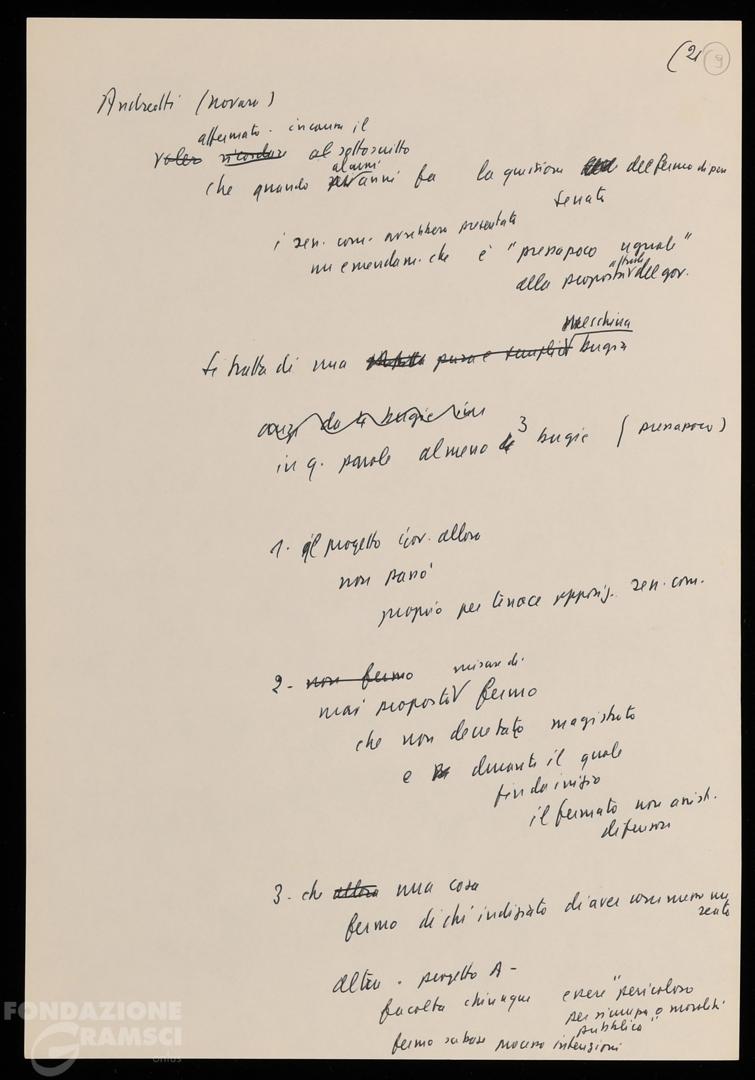 (2 9
Andreotti (Novara)
affermato - incauta il
voler ricordare al sottoscritto
che quando alcuni anni fa la questione del fermo di p.s.
Senato
i sen. com. avrebbero presentato
un emendam. che è "pressapoco uguale"
alla proposta attuale del gov.
Si tratta di una pura e semplice meschina bugia
anzi da le bugie
in q. parole almeno 3 bugie (pressapoco)
1. il progetto gov. allora
non passò
proprio per tenace opposiz. sen. com.
2 - non fermo misure di
mai proposto fermo
che non decretato magistrato
e durante il quale
fin da inizio
il fermato non assist.
difensore
3. che allora una cosa
fermo di chi indiziato di aver commesso un
reato
altra - progetto A -
facoltà chiunque essere "pericoloso
per sicurezza o moralità
pubblica"
fermo su base processo intenzioni
FONDAZIONE
GRAMSCI
onlus